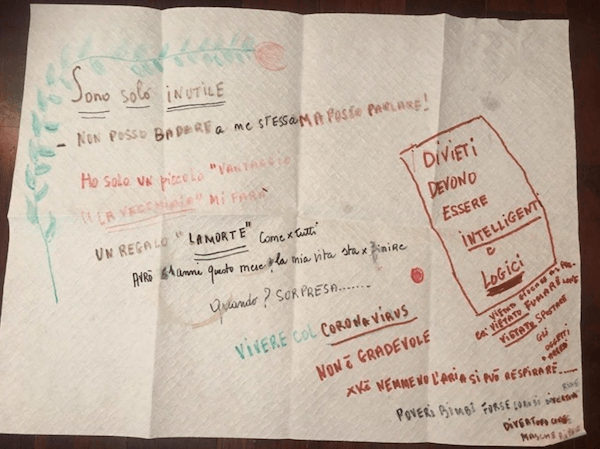 Sono solo INUTILE
- NON POSSO BADARE a me STESSA MA POSSO PARLARE!
Ho solo UN piccolo "VANTAGGIO"
LA VECCHIAIA" MI FARÀ
UN REGALO "LAMORTE" Come x tutti
AVRÒ anni questo mese, la mia vita sta x finire
Quando? SORPRESA.......
VIVERE COL CORONAVIRUS
NON È GRADEVOLE
XKÈ NEMMENO L'ARIA SI PUÒ RESPIRARE.....
POVERI BIMBI FORSE
DIVIETI
DEVONO
ESSERE
INTELLIGENTI
e
LOGICI
VIETATO GIOCARE
VIETATO FUMARE
VIETATO SPOSTARE
GLI
OGGETTI